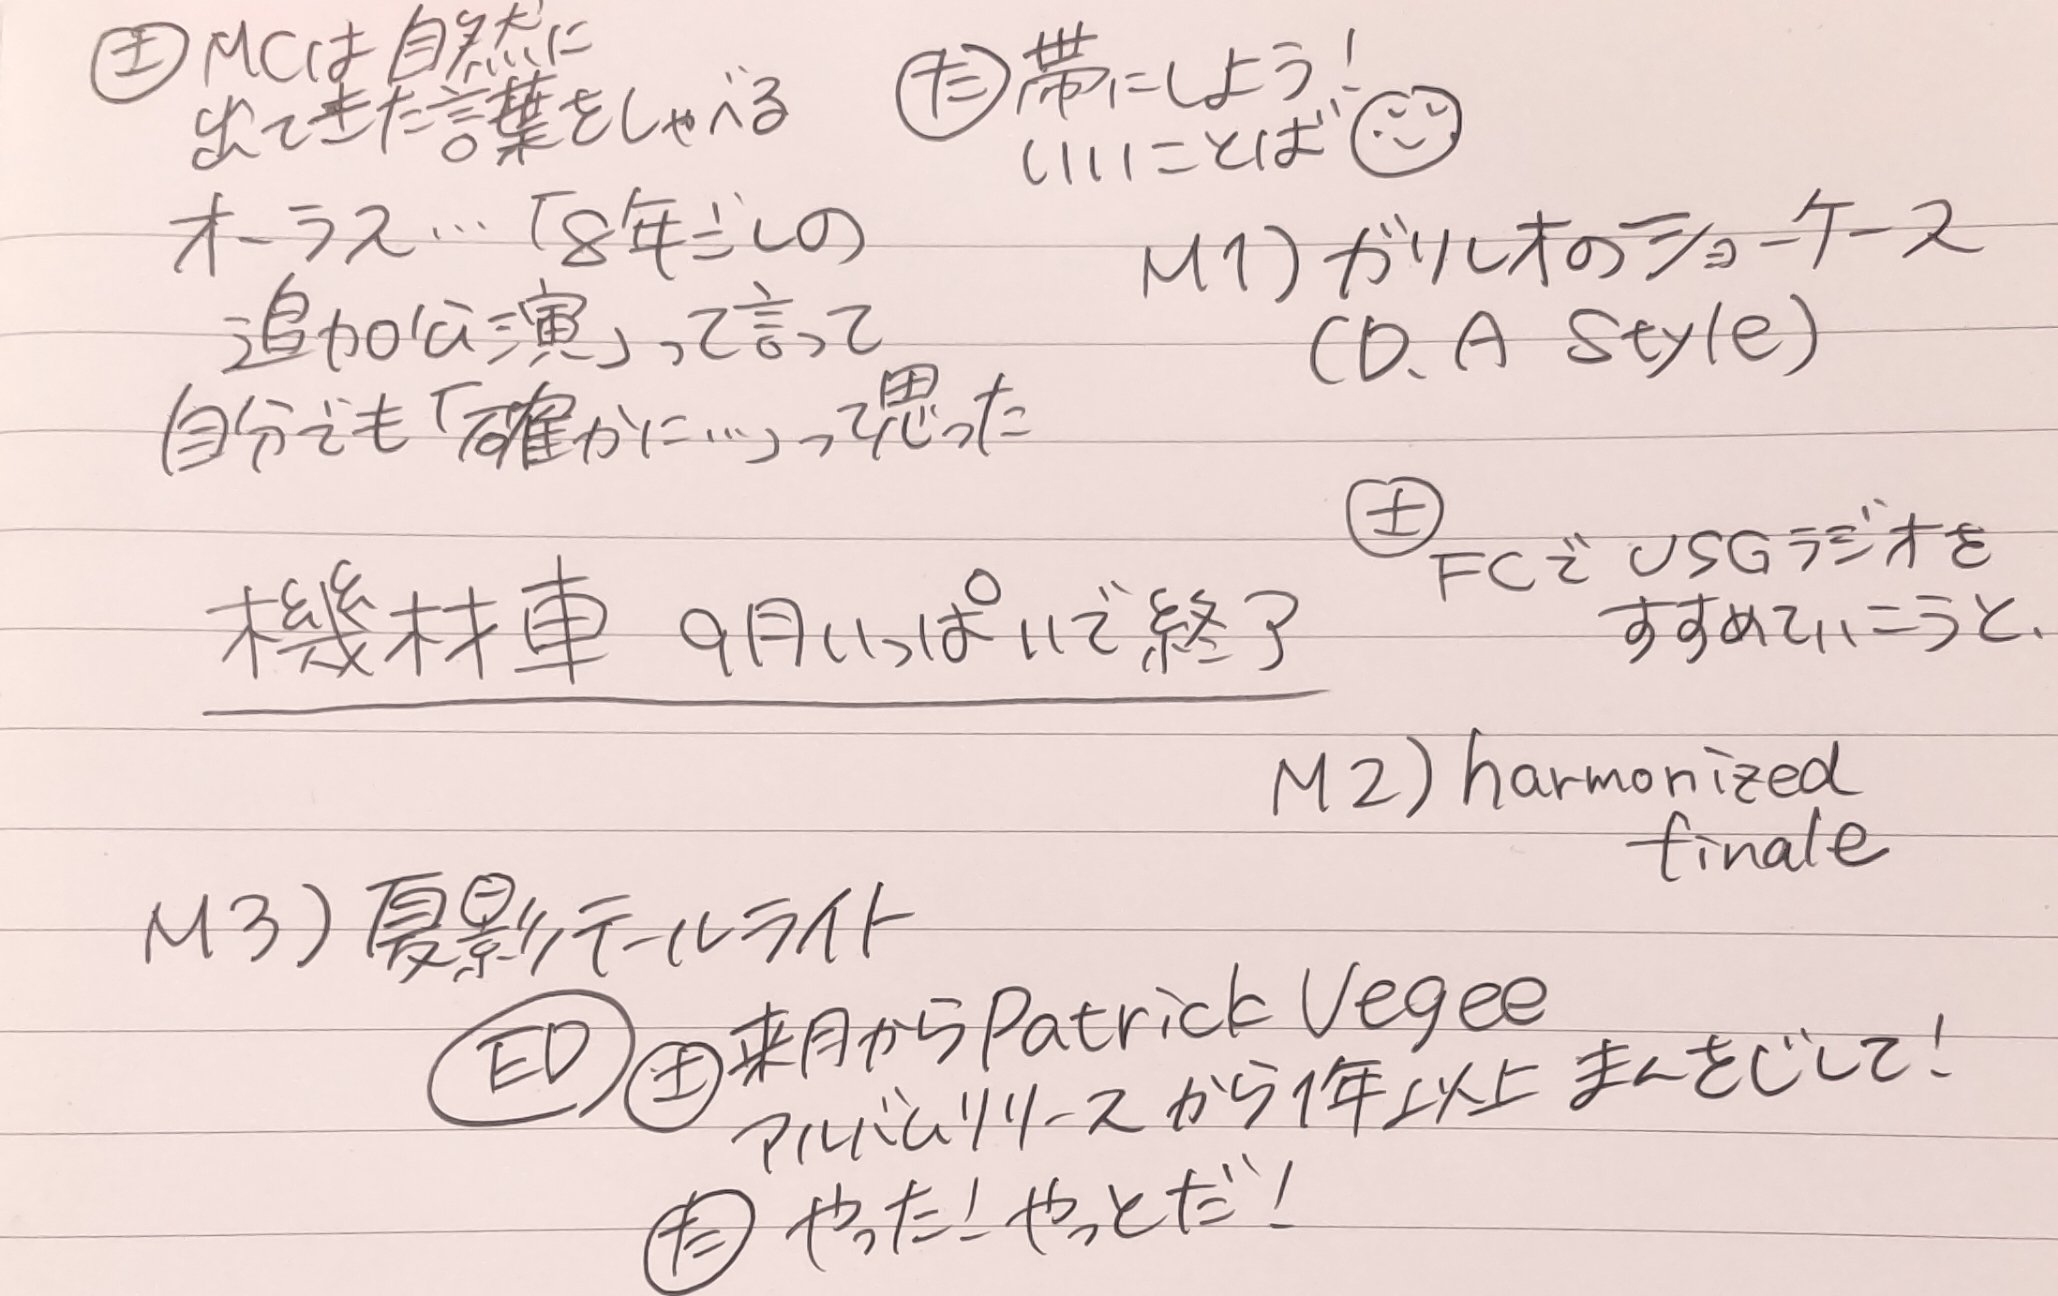 ㊏ MCは自然に
出てきた言葉をしゃべる
オーラス…「8年ごしの
追加公演」って言って
自分でも「確かに…」って思った
た 帯にしよう!
いいことば
M1) ガリレオのショーケース
(D.A Style)
㊏
FCでUSGラジオを
すすめていこうと、
機材車 9月いっぱいで終了
M2) harmonized
finale
M3) 夏影テールライト
ED ㊏ 来月からPatrick Vegee
アルバムリリースから1年以上 まんをじして!
た やった!やっとだ!